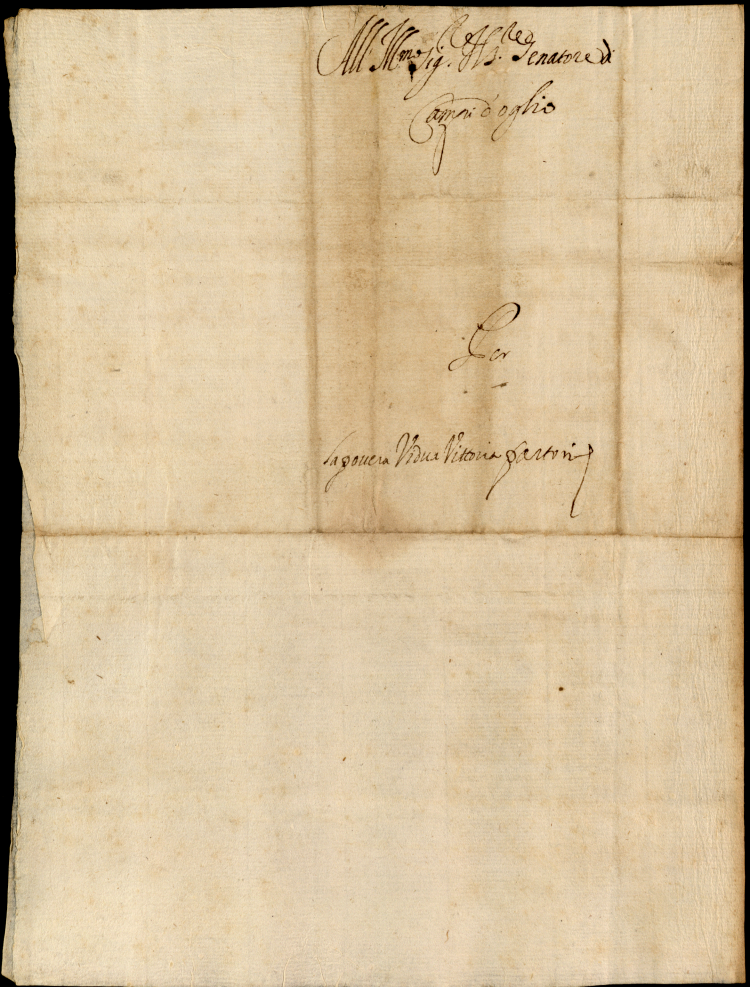 All Ill.mo Sig.re Senatore di
Campi d'oglio
Per
La povera Vidua Vittoria Sartori